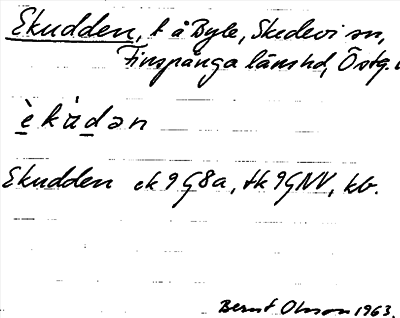 Ekudden, t å Byle, Skedevi sn,
Finspånga länshd, Östg.
è k ù d ə n
Ekudden ek 9G8a, tk 9GNV, kb.
Bernt Olsson 1963.